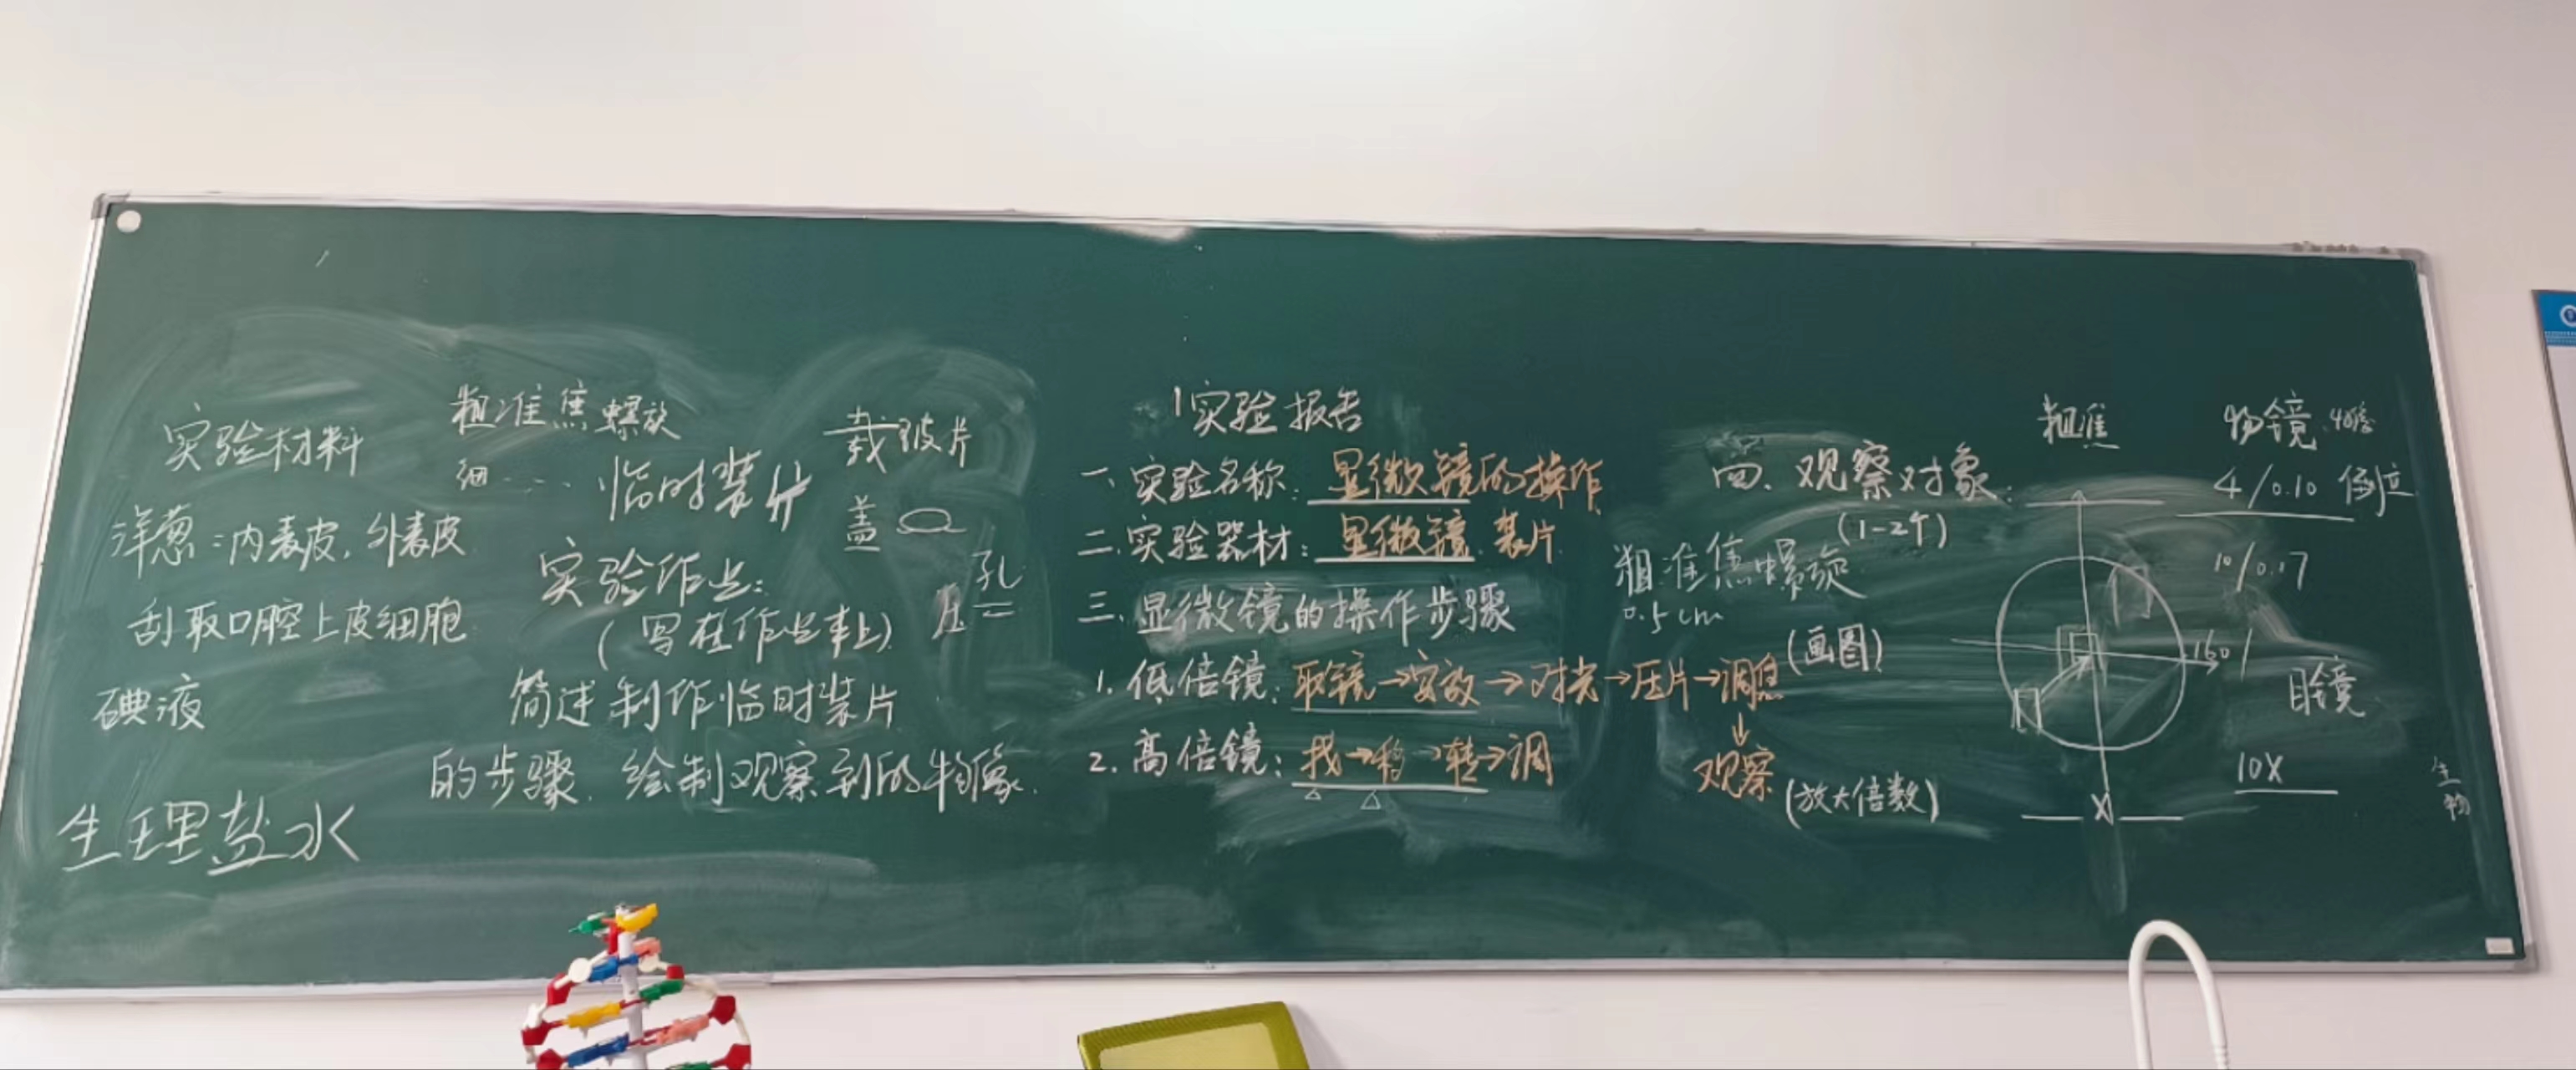 实验材料
洋葱:内表皮,外表皮
刮取口腔上皮细胞
碘液
生理盐水
粗准焦螺旋
细......
临时装片
实验作业:
(写在作业本上)
简述制作临时装片
的步骤.绘制观察到的物像.
载玻片
盖
压
孔
实验报告
一、实验名称:显微镜的操作
二、实验器材:显微镜、装片
三、显微镜的操作步骤
1.低倍镜:取镜→安放→对光→压片→调焦
↓
观察
2.高倍镜:找→移→转→调
四、观察对象:
(1-2个)
粗准焦螺旋
0.5cm
(画图)
(放大倍数)
粗准焦
物镜
4/0.10 倒立
10/0.17
160/
目镜
10X
生物